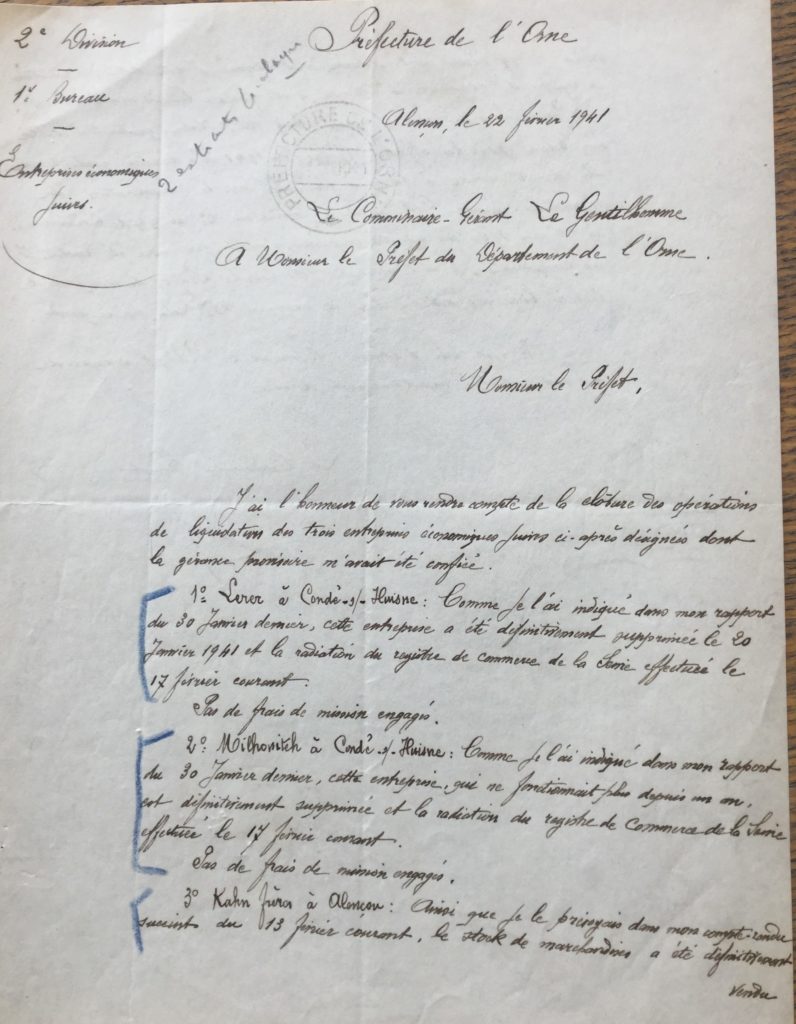 2e Division
Préfecture de l'Orne
1er Bureau
2 extraits
PRÉFECTURE DE L'ORNE
Alençon, le 22 février 1941
Entreprises économiques
Juives.
Le Commissaire-Gérant Le Gentilhomme
A Monsieur le Préfet du Département de l'Orne.
Monsieur le Préfet,
J'ai l'honneur de vous rendre compte de la clôture des opérations
de liquidation des trois entreprises économiques juives ci-après désignées dont
la gérance provisoire m'avait été confiée.
1º Lerer à Condé-s/-Huisne : Comme je l'ai indiqué dans mon rapport
du 30 Janvier dernier, cette entreprise a été définitivement supprimée le 20
Janvier 1941 et la radiation du registre de commerce de la Seine effectuée le
17 février courant.
Pas de frais de mission engagés.
2º Milhovitch à Condé-s/-Huisne : Comme je l'ai indiqué dans mon rapport
du 30 Janvier dernier, cette entreprise, qui ne fonctionnait plus depuis un an,
est définitivement supprimée et la radiation du registre de Commerce de la Seine
effectuée le 17 février courant.
Pas de frais de mission engagés.
3º Kahn frères à Alençon : Ainsi que je le prévoyais dans mon compte-rendu
succinct du 13 février courant, le stock de marchandises a été définitivement
vendu